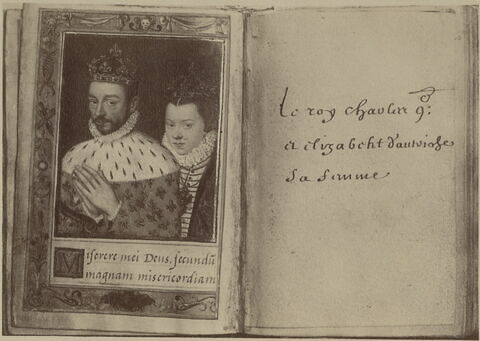 Miserere mei Deus, secundū
magnam misericordiam
Le roy charles 9e.
et elizabeht d'autriche
sa femme